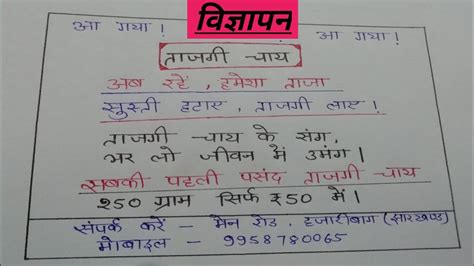 विज्ञापन
आ गया ! आ गया !
ताजगी चाय
अब रहें , हमेशा ताजा
सुस्ती हटाए , ताजगी लाए !
ताजगी चाय के संग,
भर लो जीवन में उमंग ।
सबकी पहली पसंद ताजगी चाय
250 ग्राम सिर्फ ₹50 में ।
संपर्क करें - मेन रोड , हजारीबाग (झारखण्ड)
मोबाइल - 9958780065